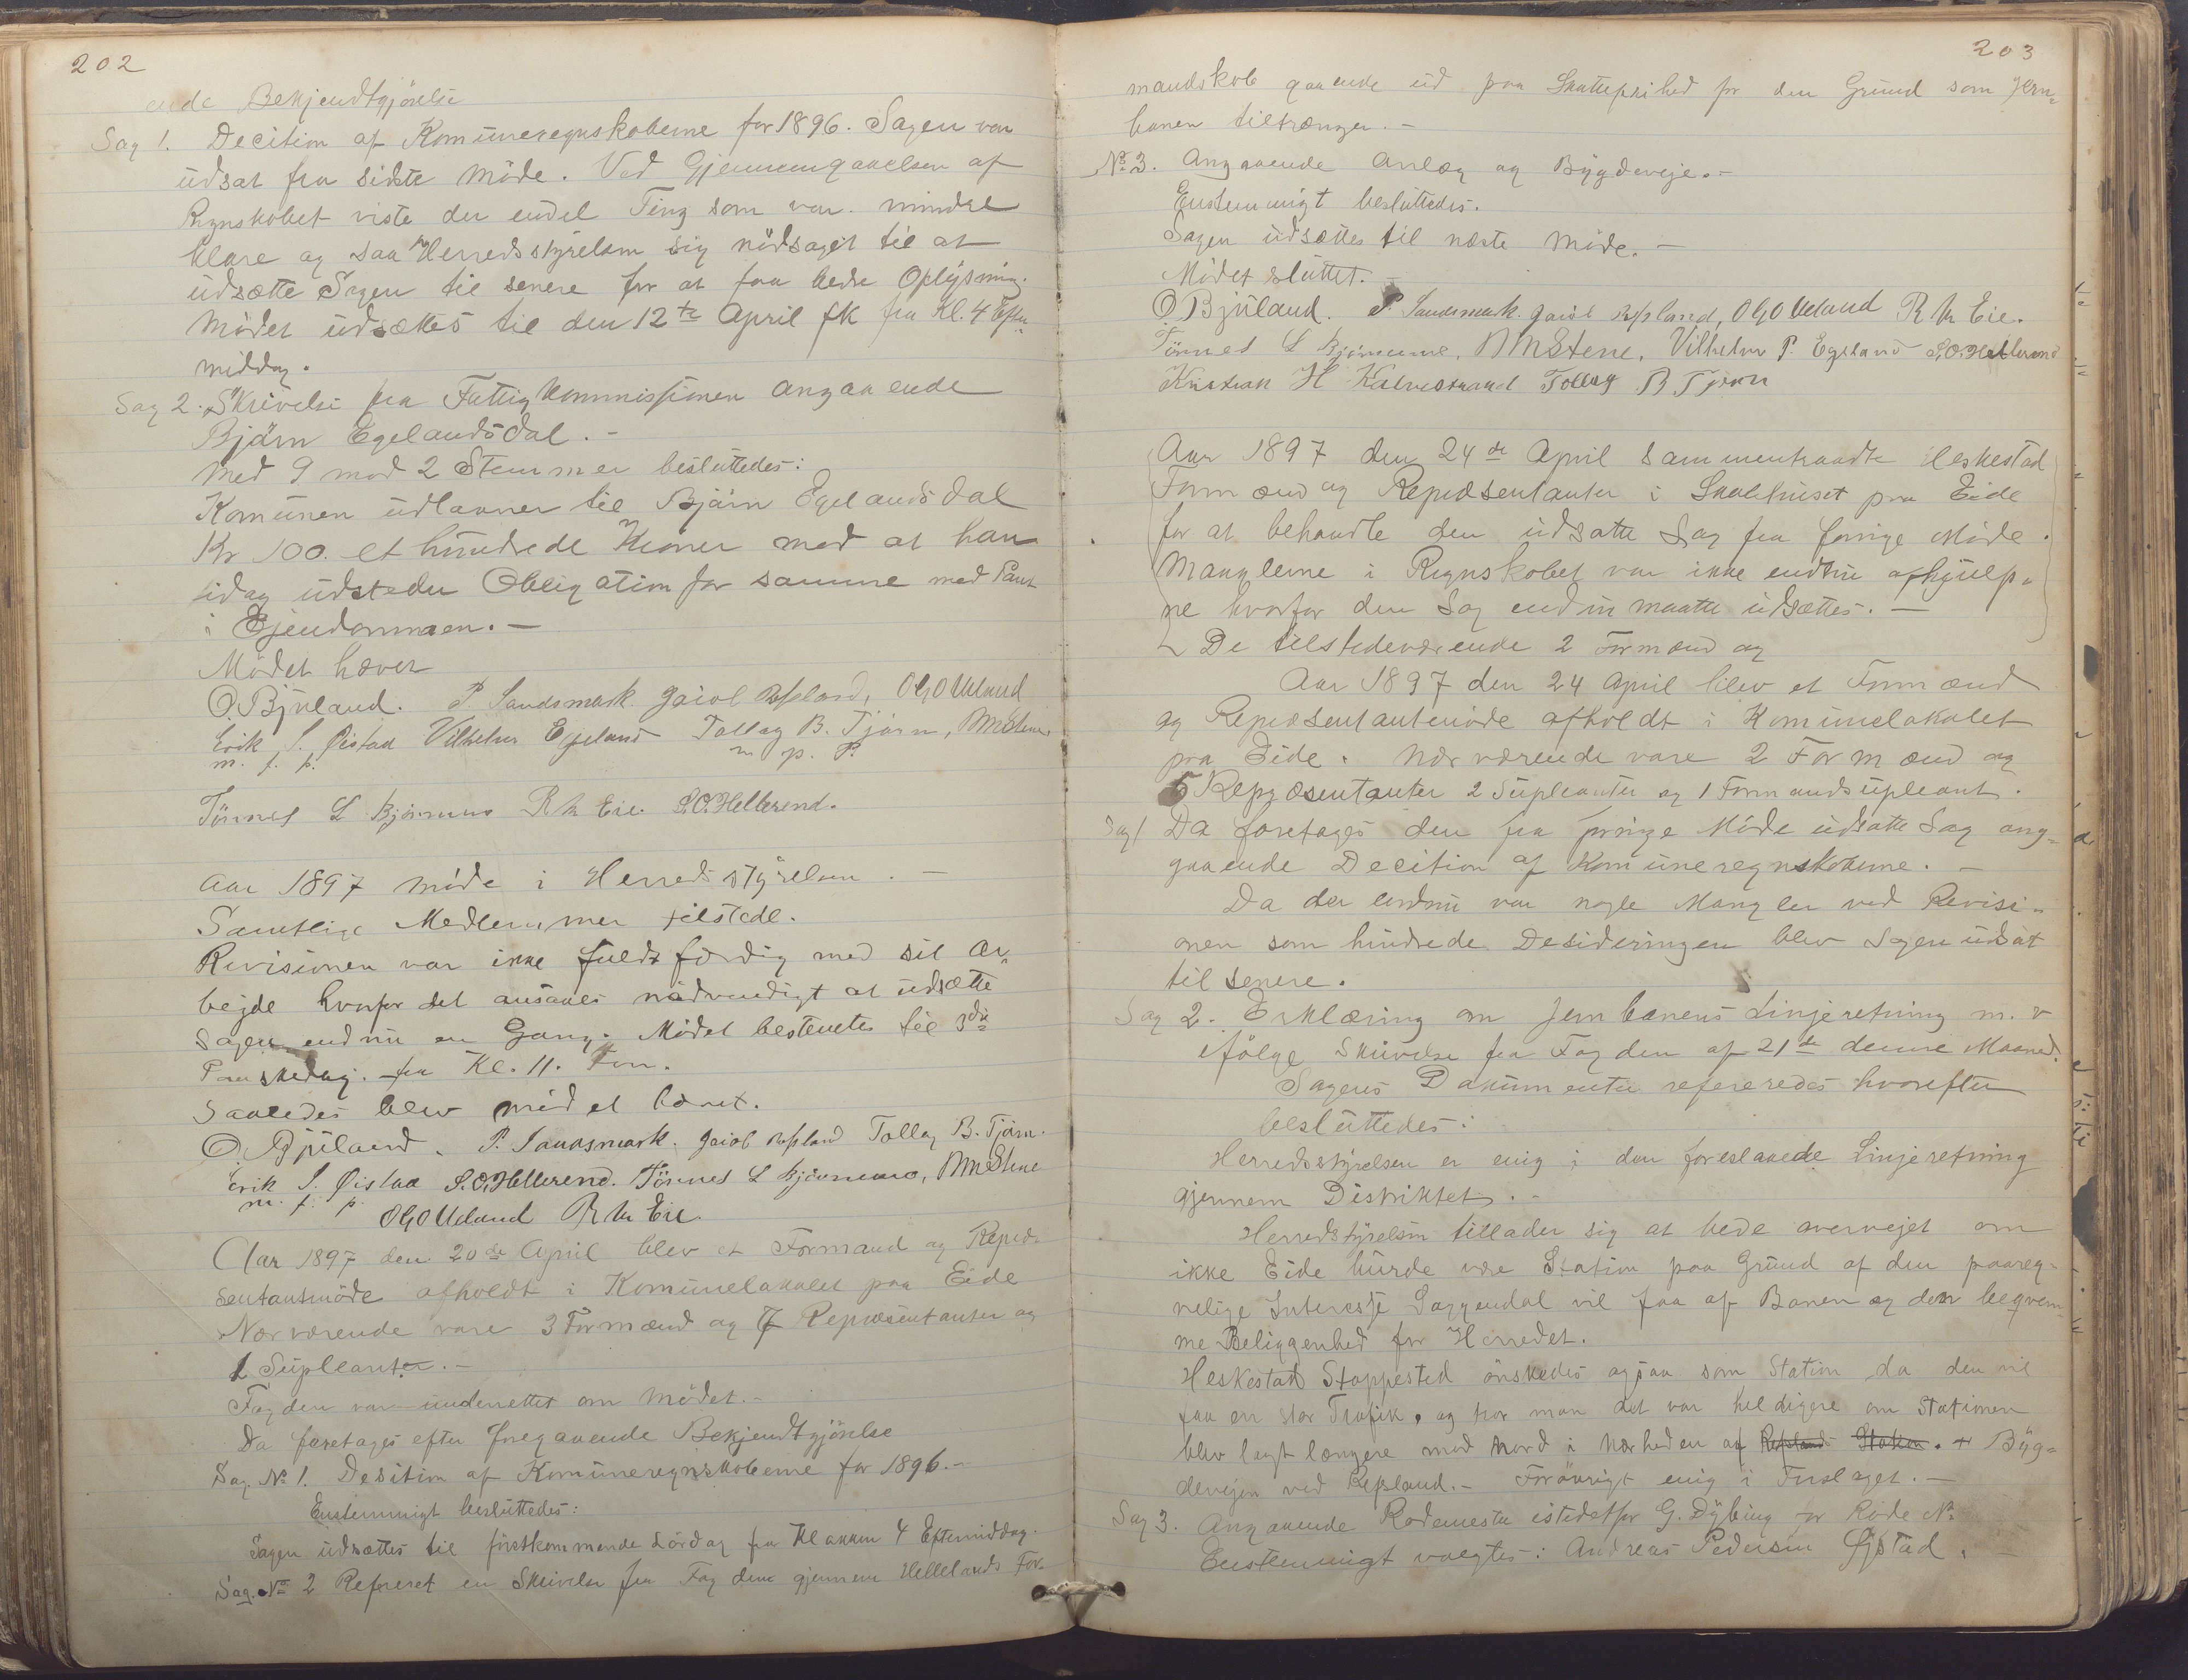 202
ende Bekjendtgjörelse
Sag 1. Decition af Komüneregnskaberne for 1896. Sagen var
üdsat fra sidste Möde. Ved Gjennemgaaelsen af
Regnskabet viste der endel Ting som var mindre
klare og saa Herredsstyrelsen sig nödsaget til at
üdsætte Sagen til senere for at faa bedre Oplysning.
Mödet üdsættes til den 12te April fk fra Kl. 4 Efter-
middag.
Sag 2. Skrivelse fra Fattigkommissionen angaaende
Björn Egelandsdal. -
Med 9 mod 2 Stemmer beslüttedes:
Komünen üdlaaner til Björn Egelandsdal
Kr 100. et hündrede Kroner mod at han
idag üdsteder Obligation for samme med Pant
i Ejendommen. -
Mödet hæver
O. Bjüland. P. Sandsmark. Jacob Refsland, O G O Ueland
Erik S. Öistad Vilhelm Egeland Tollag B. Tjörn, BMStene
m. f. p. m. p. P.
Tönnes L Bjömmno R M Eie. S.O.Hellerend.
Aar 1897 möde i Herredsstyrelsen. -
Samtlige Medlemmer tilstede.
Revisionen var ikke füldt færdig med sit Ar-
bejde hvorfor det ansaaes nödvendigt at üdsætte
Sagen endnü en Gang. Mödet bestemtes til 3die
Paaskedag. fra Kl. 11. Form.
Saaledes blev mödet hævet.
O. Bjüland. P. Sandsmark. Jacob Refsland Tollag B. Tjörn.
Erik S. Öistad S.O.Hellerend. Tönnes L Bjömmno, BMStene
m. f. p. O G O Ueland R M Eie
Aar 1897 den 20de April blev et Formand og Repræ-
sentantmöde afholdt i Komünelokalet paa Eide
Nærværende vare 3 Formænd og 7 Repræsentanter og
1 Süpleanter. -
Fogden var underrettet om Mödet. -
Da foretages efter foregaaende Bekjendtgjörelse
Sag No 1. Desition af Komüneregnskaberne for 1896. -
Enstemmigt beslüttedes:
Sagen üdsættes til förstkommende Lördag fra Klokken 4 Eftermiddag.
Sag. No 2 Referert en Skrivelse fra Fogden gjennem Hellelands For-
203
mandskab gaaende üd paa Skattefrihed for den Gründ som Jern-
banen tiltrænger. -
No 3. Angaaende Anlæg og Bygdeveje. -
Enstemmigt beslüttedes.
Sagen üdsættes til næste Möde. -
Mödet slüttet. -
O Bjüland. P. Sandsmark. Jacob Refsland, O G O Ueland R M Eie.
Tönnes L Bjömmne, BMStene, Vilhelm P. Egeland S.O.Hellerend
Kristian H Kalvestrand Tollag B Tjörn
Aar 1897 den 24de April sammentraadte Heskestad
Formænd og Repræsentanter i Skolehüset paa Eide
for at behandle den üdsatte Sag fra forrige Möde.
Manglerne i Regnskabet var ikke endnü afhjülp-
ne hvorfor den Sag endnü maatte üdsættes. -
De tilstedeværende 2 Formænd og
Aar 1897 den 24 April blev et Formænd
og Repræsentantmöde afholdt i Komünelokalet
paa Eide. Nærværende vare 2 Formænd og
5 Repræsentanter 2 Süpleanter og 1 Formandsüpleant.
Sag 1 Da foretages den fra forrige Möde üdsatte Sag ang-
gaaende Decition af Komüneregnskaberne. -
Da der endnü var nogle Mangler ved Revisi-
onen som hindrede Desideringen blev Sagen üdsat
til senere.
Sag 2. Erklæring om Jernbanens Linjeretning m. v
ifölge Skrivelse fra Fogden af 21de denne Maaned.
Sagens Dokümenter refereredes hvorefter
beslüttedes:
Herredsstyrelsen er enig i den foreslaaede Linjeretning
gjennem Distriktet. -
Herredsstyrelsen tillader sig at bede overvejet om
ikke Eide bürde være Station paa Gründ af den paareg-
nelige Interesse Saggendal vil faa af Banen og den beqvem-
me Beliggenhed for Herredet.
Heskestad Stoppested önskedes ogsaa som Station da den vil
faa en stor Trafik, og tror man det var heldigere om Stationen
blev lagt længere mod Nord i Nærheden af Refslands Station. + Byg-
devejen ved Refsland. - Forövrigt enig i Forslaget. -
Sag 3. Angaaende Rodemester istedetfor G. Dybing for Rode No
Enstemmigt valgtes: Andreas Pedersen Öjstad. -